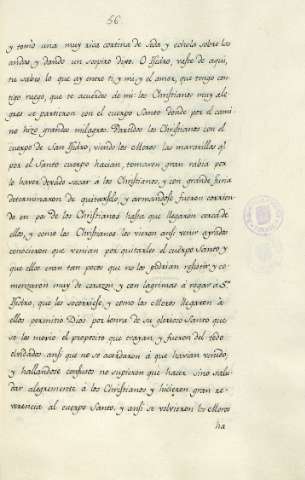 56.
y tomo una muy rica cortina de seda y echola sobre las
andas y dando un sospiro dixo. O Isidro, vaste de aqui,
tu sabes lo que ay entre ti y mi, y el amor, que tengo con
tigo ruego, que te acuerdes de mi: los Christianos muy ale
gres se partieron con el cuerpo Santo donde por el cami
no hizo grandes milagros. Partidos los Christianos con el
cuerpo de San Isidro, viendo los Moros las maravillas q̃
por el Santo cuerpo havian, tomaron gran rabia por
le haver dexado sacar á los Christianos, y con grande furia
determinaron de quitarselo y armandose fueron corrien
do en pos de los Christianos hasta que llegaron cerca de
ellos, y como los Christianos los vieron ansi venir ayrados
conocieron que venian por quitarles el cuerpo Santo y
que ellos eran tan pocos que no les podrian resistir y co
menzaron muy de corazon y con lagrimas á rogar a Sn.
Isidro, que les socorriese, y como los Moros llegaron á
ellos permitio Dios por honra de su glorioso Santo que
se les movio el proposito que trayan, y fueron del todo
olvidados ansi que no se acordaron á que havian venido,
y hallandose confusos no supieron que hacer sino salu
dar alegremente á los Christianos y hicieron gran re
verencia al cuerpo Santo, y ansi se volvieron los Moros
ha